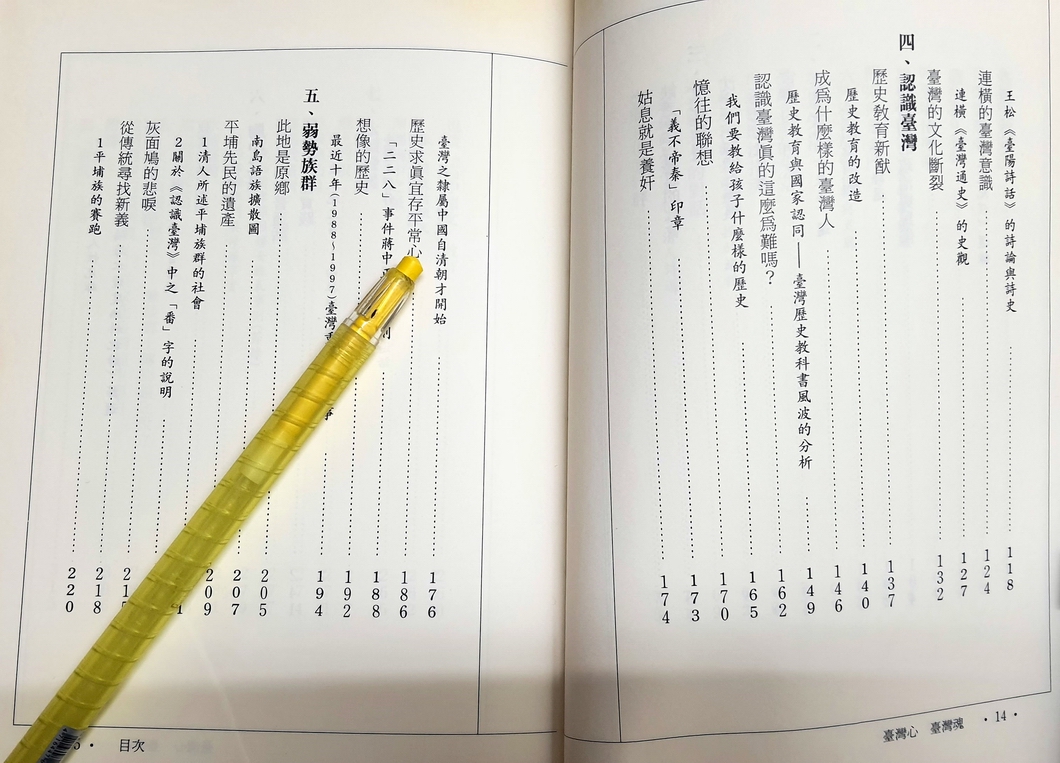 王松《臺陽詩話》的詩論與詩史 118
連橫的臺灣意識 124
連橫《臺灣通史》的史觀 127
臺灣的文化斷裂 132
四、認識臺灣
歷史教育新猷 137
歷史教育的改造 140
成爲什麼樣的臺灣人 146
歷史教育與國家認同——臺灣歷史教科書風波的分析 149
認識臺灣眞的這麼爲難嗎？ 162
我們要教給孩子什麼樣的歷史 165
憶往的聯想 170
「義不帝秦」印章 173
姑息就是養奸 174
臺灣心 臺灣魂 ・14・
臺灣之隸屬中國自清朝才開始 176
歷史求眞宜存平常心 186
「二二八」事件蔣中 188
想像的歷史 192
最近十年(1988~1997)臺灣 194
五、弱勢族群
此地是原鄉 205
南島語族擴散圖 207
平埔先民的遺產 209
1清人所述平埔族群的社會
2關於《認識臺灣》中之「番」字的說明
灰面鳩的悲唳
從傳統尋找新義 218
1平埔族的賽跑 220
目次